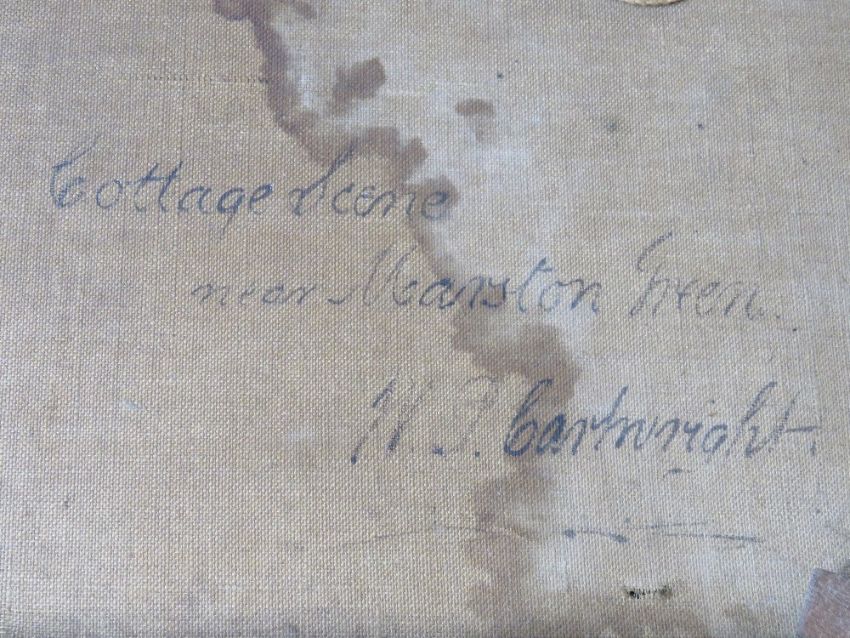 Cottage Scene
near Marston Green.
W. P. Cartwright.